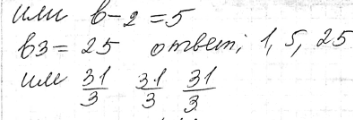 или в-2 = 5
в3 = 25 ответ; 1, 5, 25
или 31/3 31/3 31/3